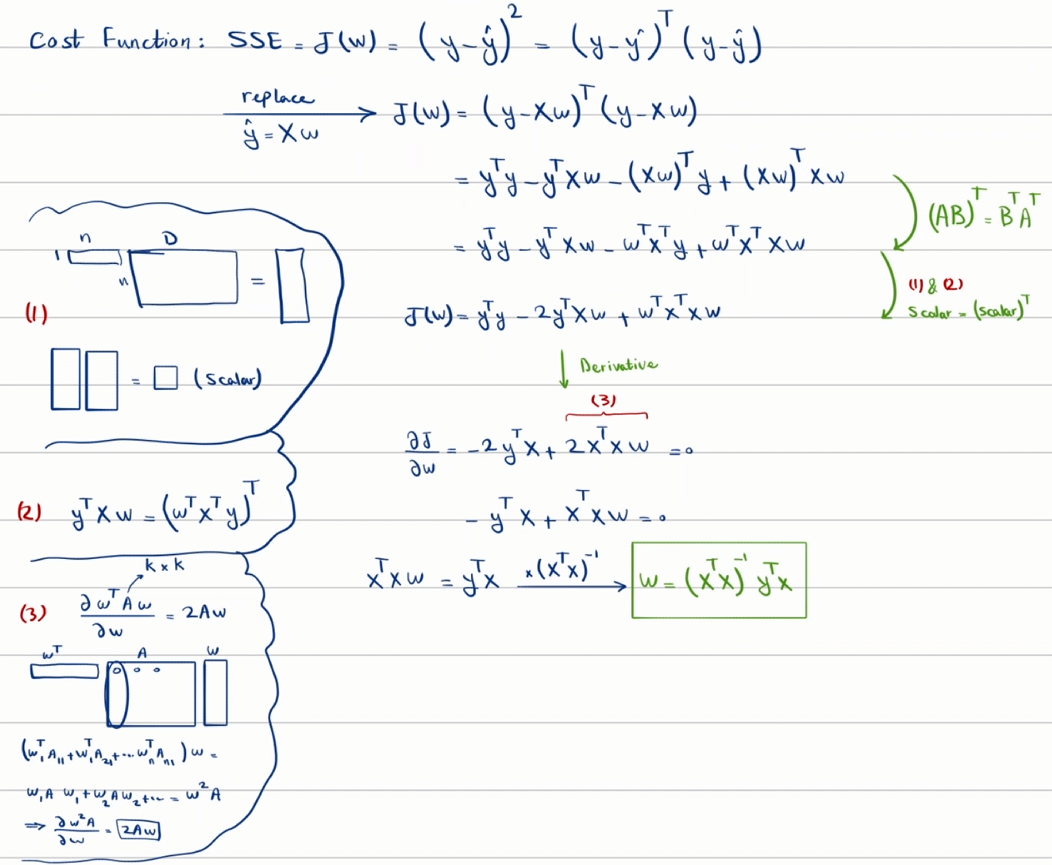 Cost Function: SSE = J(w) = (y-ŷ)² = (y-ŷ)ᵀ(y-ŷ)
replace
ŷ = Xw
J(w) = (y-Xw)ᵀ(y-Xw)
= yᵀy - yᵀXw - (Xw)ᵀy + (Xw)ᵀXw
(AB)ᵀ = BᵀAᵀ
= yᵀy - yᵀXw - wᵀXᵀy + wᵀXᵀXw
(1) & (2)
Scalar = (scalar)ᵀ
J(w) = yᵀy - 2yᵀXw + wᵀXᵀXw
Derivative
(3)
∂J/∂w = -2yᵀX + 2XᵀXw = 0
- yᵀX + XᵀXw = 0
XᵀXw = yᵀX
×(XᵀX)⁻¹
w = (XᵀX)⁻¹yᵀX
n D
1
n
=
(1)
= (Scalar)
(2) yᵀXw = (wᵀXᵀy)ᵀ
k × k
(3) ∂wᵀAw/∂w = 2Aw
wᵀ A w
(w₁ᵀA₁₁ + w₁ᵀA₂₁ + ... wₙᵀAₙ₁)w =
w₁A w₁ + w₂Aw₂ + ... = w²A
⇒ ∂w²A/∂w = 2Aw